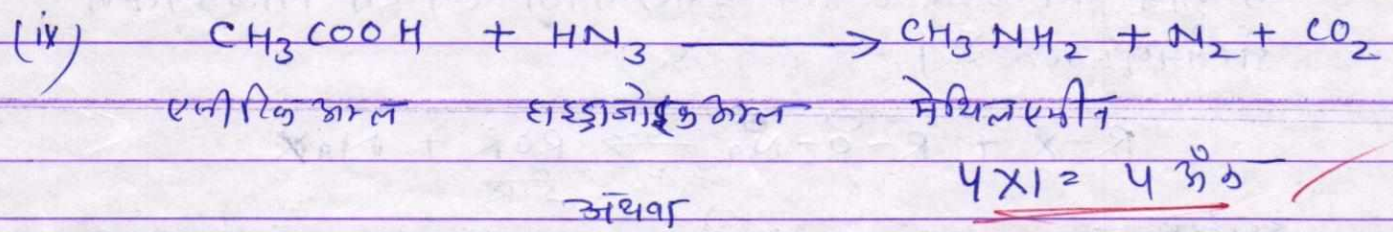 (iv) CH₃COOH + HN₃ ⟶ CH₃NH₂ + N₂ + CO₂
एसीटिक अम्ल हाइड्राजोईक अम्ल मेथिलएमीन
4X1 = 4 अंक
अथवा